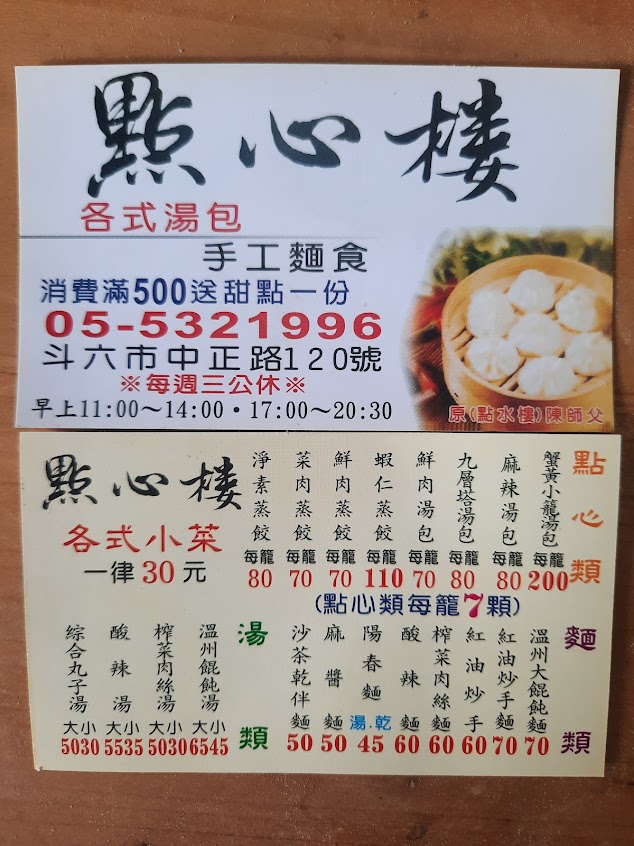 點心樓
各式湯包
手工麵食
消費滿500送甜點一份
05-5321996
斗六市中正路120號
※每週三公休※
早上11:00～14:00・17:00～20:30
原(點水樓)陳師父
點心樓
各式小菜
一律30元
點心類
蟹黃小籠湯包 每籠 200
麻辣湯包 每籠 80
九層塔湯包 每籠 80
鮮肉湯包 每籠 70
蝦仁蒸餃 每籠 110
鮮肉蒸餃 每籠 70
菜肉蒸餃 每籠 70
淨素蒸餃 每籠 80
(點心類每籠7顆)
麵類
溫州大餛飩麵 70
紅油炒手麵 70
紅油炒手 60
榨菜肉絲麵 60
酸辣麵 60
陽春麵 湯.乾 45
麻醬麵 50
沙茶乾伴麵 50
湯類
溫州餛飩湯 大小 6545
榨菜肉絲湯 大小 5030
酸辣湯 大小 5535
綜合丸子湯 大小 5030